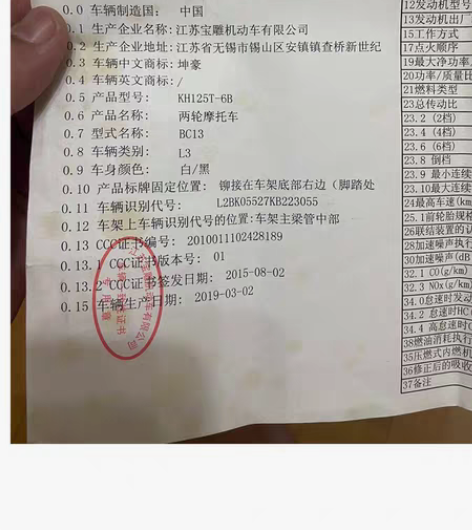 0.0 车辆制造国: 中国
0.1 生产企业名称:江苏宝雕机动车有限公司
0.2 生产企业地址:江苏省无锡市锡山区安镇镇查桥新世纪
0.3 车辆中文商标:坤豪
0.4 车辆英文商标:/
0.5 产品型号: KH125T-6B
0.6 产品名称: 两轮摩托车
0.7 型式名称: BC13
0.8 车辆类别: L3
0.9 车身颜色: 白/黑
0.10 产品标牌固定位置: 铆接在车架底部右边（脚踏处
0.11 车辆识别代号: L2BK05527KB223055
0.12 车架上车辆识别代号的位置:车架主梁管中部
0.13 CCC证书编号: 2010011102428189
0.13.1 CCC证书版本号: 01
0.13.2 CCC证书签发日期: 2015-08-02
0.15 车辆生产日期: 2019-03-02
12发动机型号
13发动机出厂
15工作方式
17点火顺序
19最大净功率
20功率/质量比
21燃料类型
23总传动比
23.2 (2档)
23.4 (4档)
23.6 (6档)
23.8 倒档
23.9 最小连续
23.10最大连续
24最高车速(km
25.1前轮胎规格
26联结装置的认
28加速噪声执行
30加速噪声(dB
32.1 CO(g/km)
32.3 NOx(g/km)
34.0怠速时发动
34.2 怠速时HC(
34.4 高怠速时
38燃油消耗执行
35压燃式内燃机
36修正后的吸收
37备注